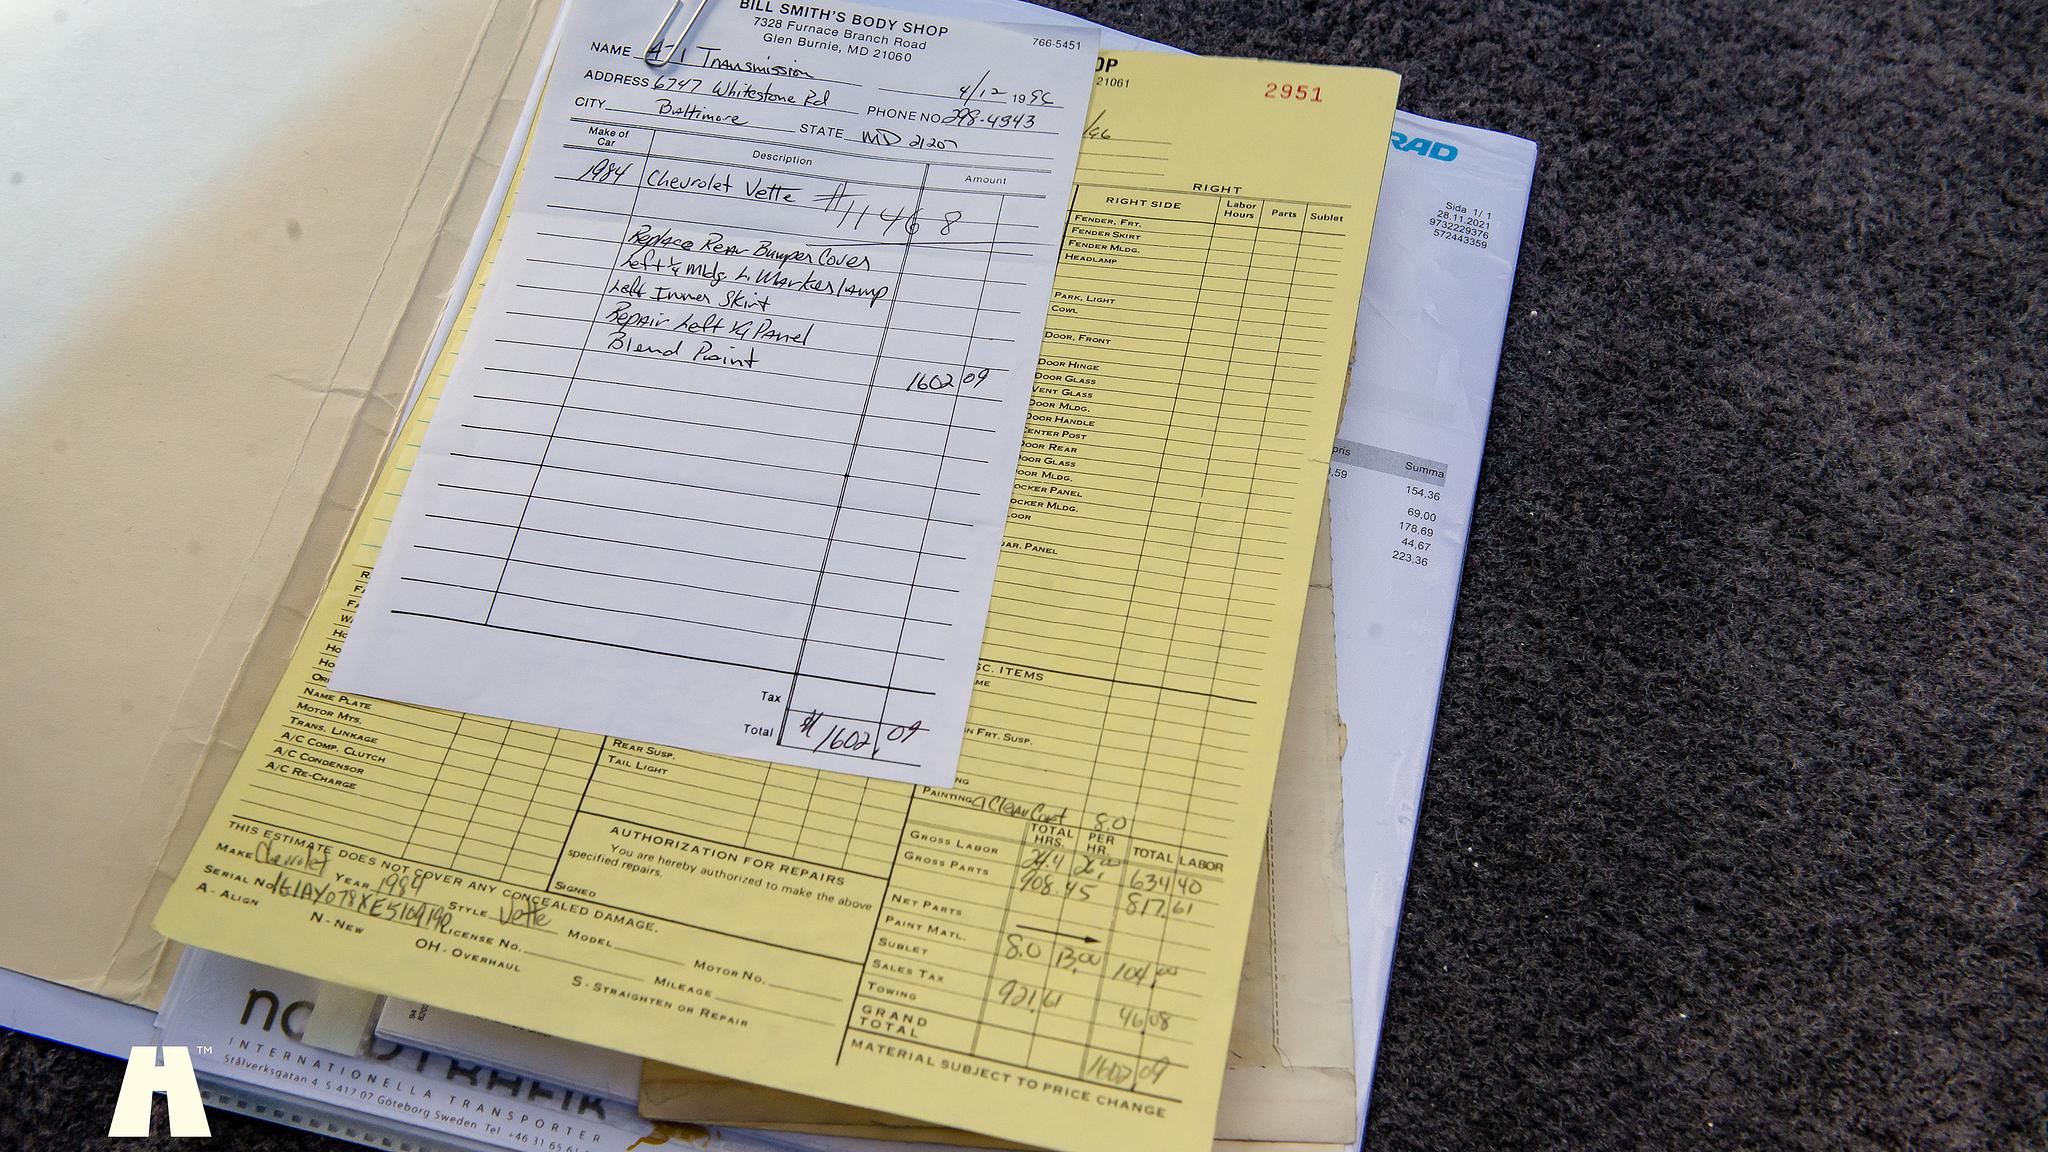 BILL SMITH'S BODY SHOP
7328 Furnace Branch Road
Glen Burnie, MD 21060
766-5451
NAME A-1 Transmission
4/12 19
ADDRESS 6747 Whitestone Rd
PHONE NO. 298-4343
CITY Baltimore STATE MD 21207
Make of Car
Description
Amount
1984 Chevrolet Vette #11468
Replace Rear Bumper Cover
Left 1/4 Mldg L. Marker lamp
Left Inner Skirt
Repair Left 1/4 Panel
Blend Paint
1602 09
Tax
Total $1602.09
OP
21061
2951
RIGHT
RIGHT SIDE Labor Hours Parts Sublet
FENDER, FRT.
FENDER SKIRT
FENDER MLDG.
HEADLAMP
PARK, LIGHT
COWL
DOOR, FRONT
DOOR HINGE
DOOR GLASS
VENT GLASS
DOOR MLDG.
DOOR HANDLE
CENTER POST
DOOR REAR
DOOR GLASS
OOR MLDG.
OCKER PANEL
OCKER MLDG.
LOOR
UAR. PANEL
SC. ITEMS
ME
N FRT. SUSP.
NG
PAINTING & Clear Coat 8.0
NAME PLATE
MOTOR MTS.
TRANS. LINKAGE
A/C COMP. CLUTCH
A/C CONDENSOR
A/C RE-CHARGE
REAR SUSP.
TAIL LIGHT
AUTHORIZATION FOR REPAIRS
You are hereby authorized to make the above
specified repairs.
SIGNED
TOTAL HRS. PER HR. TOTAL LABOR
GROSS LABOR 24.4 26.00 634 40
GROSS PARTS 908.45 817.61
NET PARTS
PAINT MATL. 8.0 13.00 104.00
SUBLET
SALES TAX 921.61 46 08
TOWING
GRAND TOTAL 1602.09
MATERIAL SUBJECT TO PRICE CHANGE
THIS ESTIMATE DOES NOT COVER ANY CONCEALED DAMAGE.
MAKE Chevrolet YEAR 1984 STYLE Vette MODEL MOTOR NO.
SERIAL NO. 1G1AY078XE5109190 LICENSE NO. MILEAGE
A - ALIGN N - NEW OH - OVERHAUL S - STRAIGHTEN OR REPAIR
RAD
Sida 1/ 1
28.11.2021
9732229376
572443359
pris Summa
,59 154,36
69,00
178,69
44,67
223,36
INTERNATIONELLA TRANSPORTER
Stålverksgatan 4, S-417 07 Göteborg Sweden Tel +46 31 65 61
H™